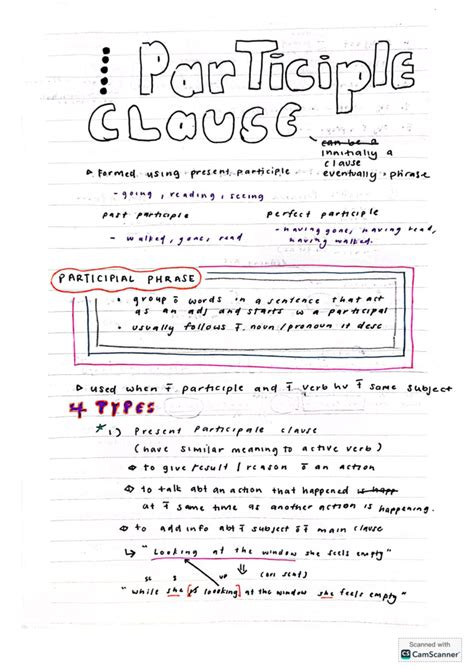 Participle
Clause
can be a
innitially a
clause
eventually → phrase
Formed using present participle
- going, reading, seeing
past participle perfect participle
- walked, gone, read - having gone, having read,
having walked.
PARTICIPIAL PHRASE
• group ō words in a sentence that act
as an adj and starts w a participal
• usually follows T. noun/pronoun it desc
used when T participle and T verb hv T same subject
4 TYPES
* 1) Present Participale clause
(have similar meaning to active verb)
to give result / reason ō an action
to talk abt an action that happened is happ
at T same time as another action is happening.
to add info abt T subject ō T main clause
↳ "Looking at the window she feels empty"
sc s vp (ori sent)
"while she [is loooking] at the window she feels empty"
Scanned with
CS CamScanner